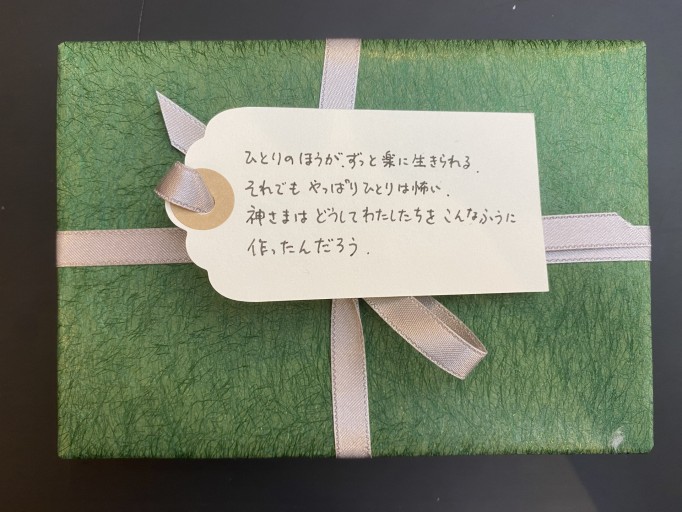 ひとりのほうが、ずっと楽に生きられる。
それでも やっぱりひとりは怖い。
神さまは どうしてわたしたちを こんなふうに
作ったんだろう。